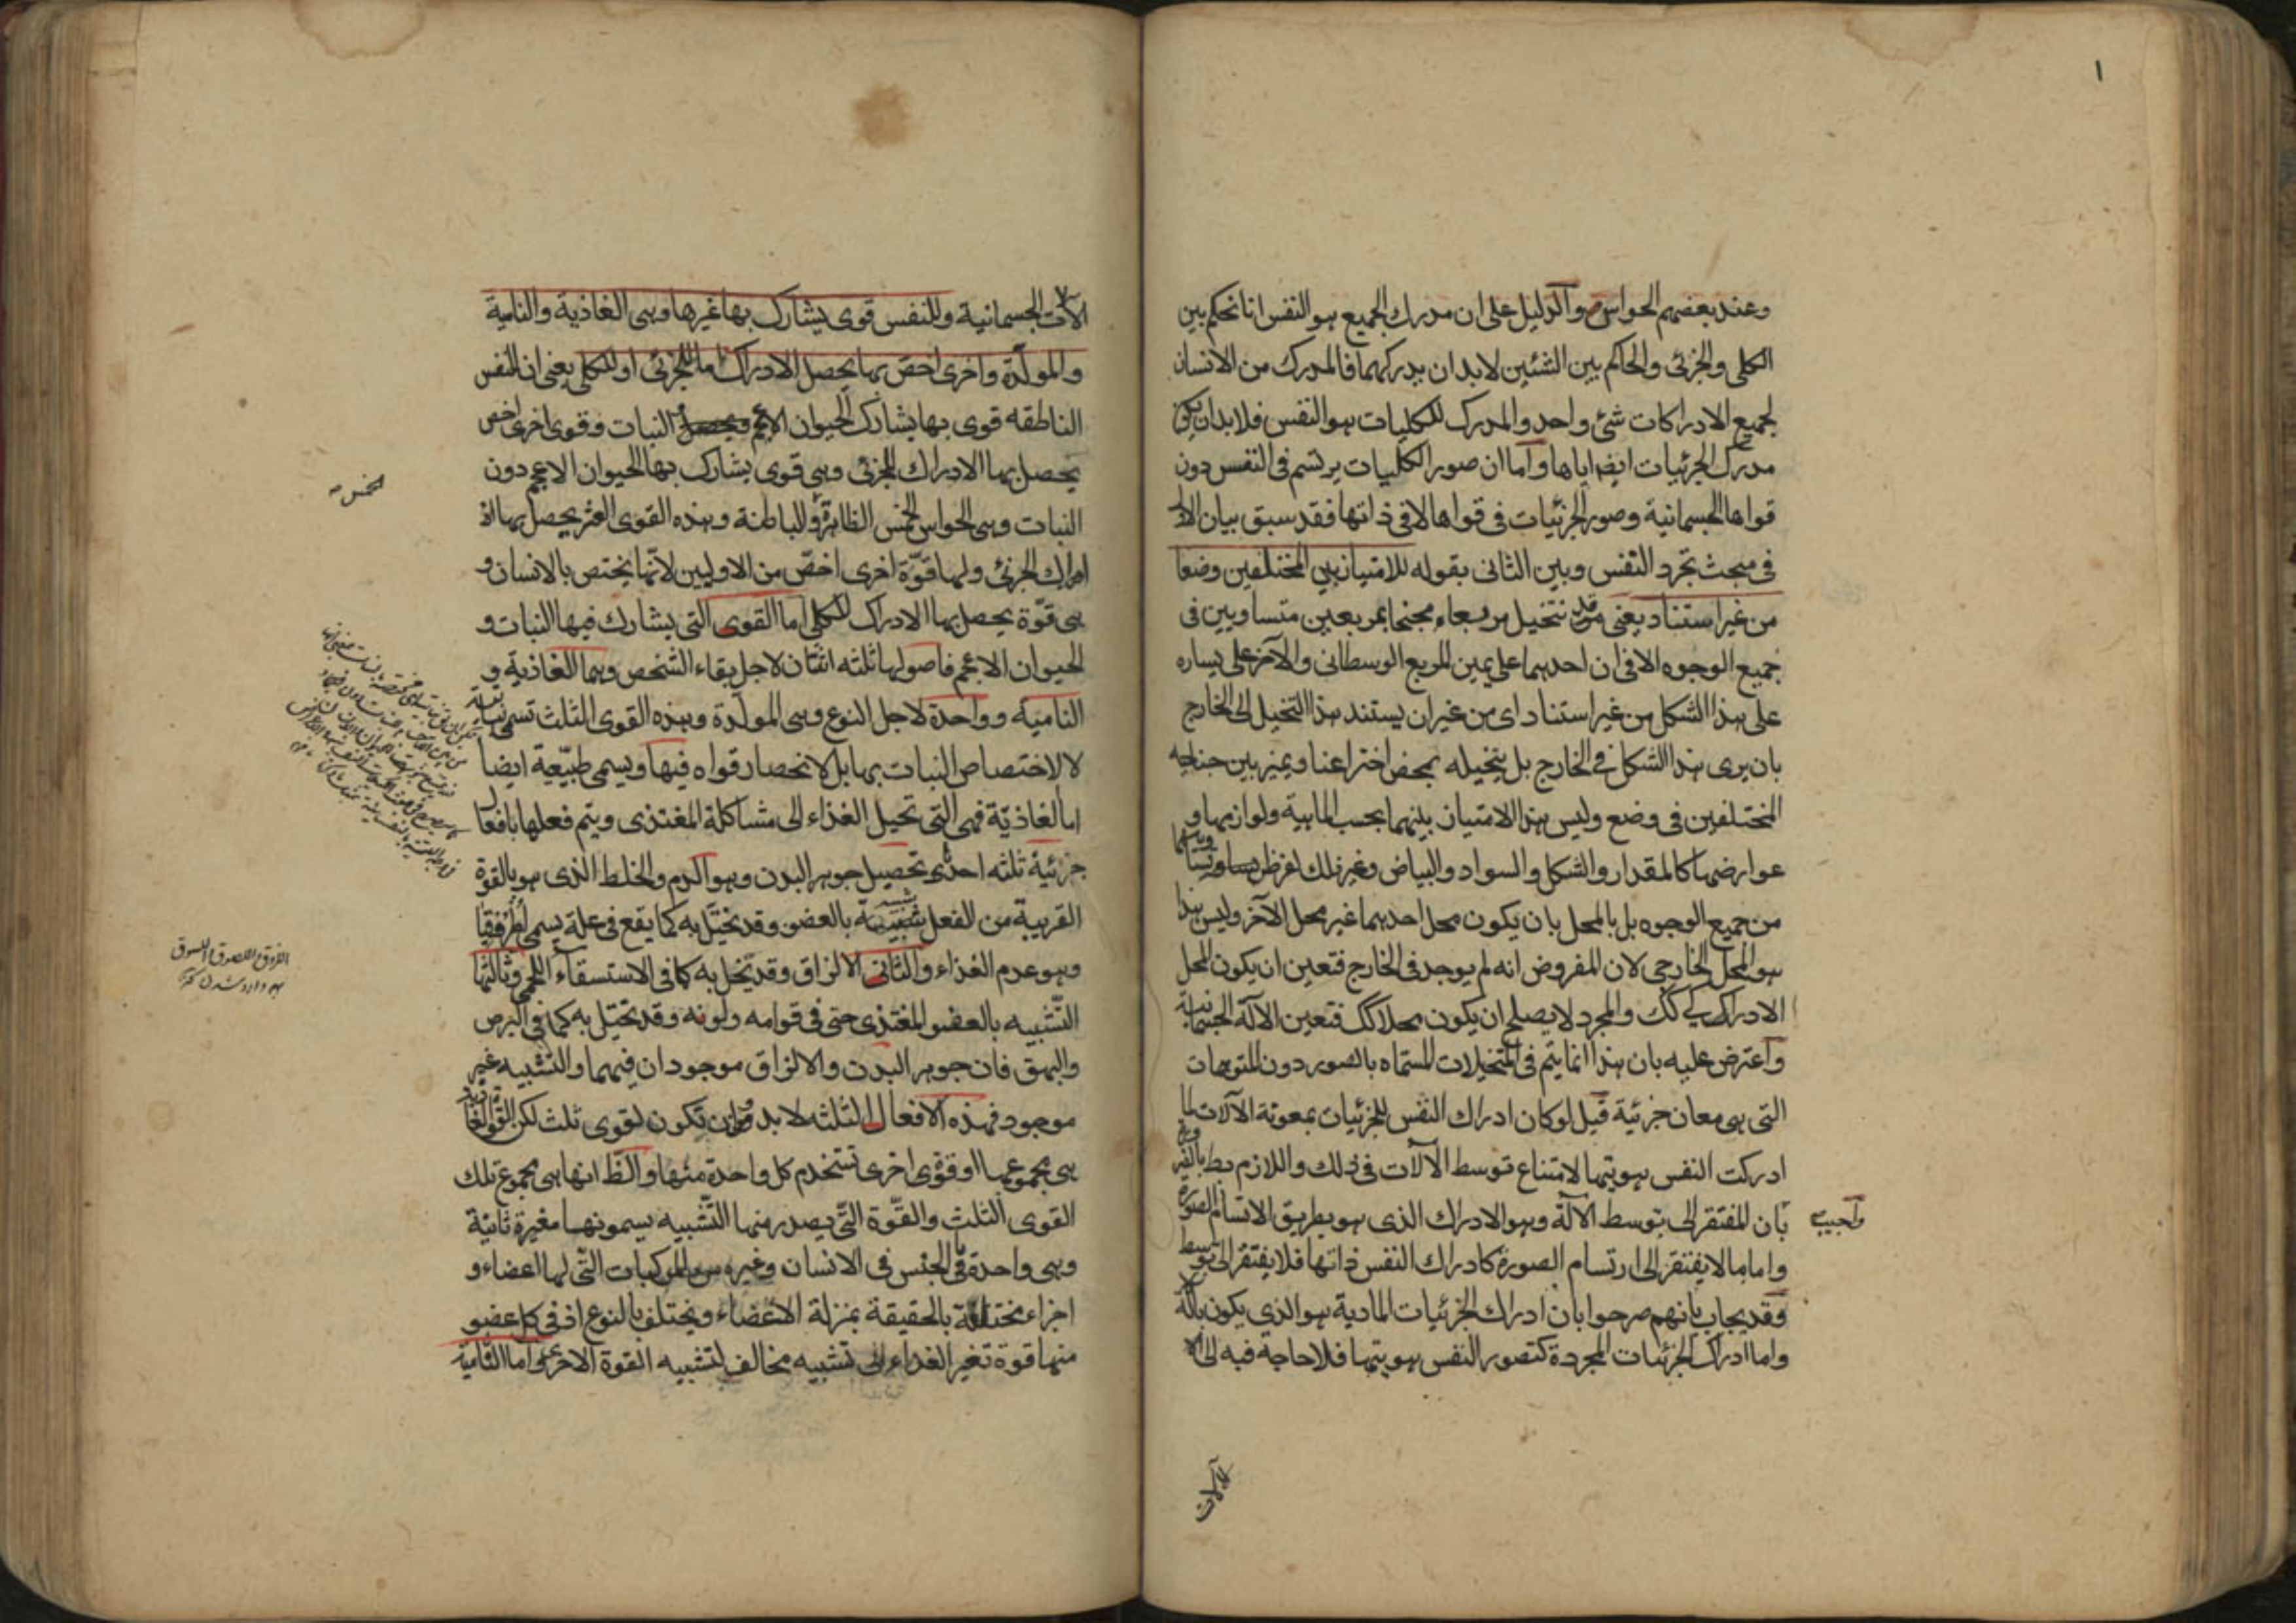 ١
وعند بعضهم الحواس والدليل على ان مدرك الجميع هو النفس انا نحكم بين
الكلى والجزئى والحاكم بين الشئين لابد ان يدركهما فالمدرك من الانسان
لجميع الادراكات شئ واحد والمدرك للكليات هو النفس فلابد ان يكون
مدرك الجزئيات ايضا اياها واما ان صور الكليات يرتسم فى النفس دون
قواها الجسمانية وصور الجزئيات فى قواها لا فى ذاتها فقد سبق بيان الاول
فى مبحث تجرد النفس وبين الثانى بقوله للامتياز بين المختلفين وضعا
من غير استناد يعنى قد نتخيل مربعا مجنحا بمربعين متساويين فى
جميع الوجوه الا فى ان احدهما على يمين المربع الوسطانى والآخر على يساره
على هذا الشكل من غير استناد اى من غير ان يستند هذا التخيل الى الخارج
بان يرى هذا الشكل فى الخارج بل يتخيله بمحض اختراعنا ويميز بين جناحيه
المختلفين فى وضع وليس هذا الامتياز بينهما بحسب الماهية ولوازمها و
عوارضها كالمقدار والشكل والسواد والبياض وغير ذلك لفرض تساويهما
من جميع الوجوه بل بالمحل بان يكون محل احدهما غير محل الآخر وليس هذا
هو المحل الخارجى لان المفروض انه لم يوجد فى الخارج فتعين ان يكون المحل
الادراكى كك والمجرد لا يصلح ان يكون محلا كك فتعين الآلة الجسمانية
واعترض عليه بان هذا انما يتم فى المتخيلات المسماه بالصور دون المتوهمات
التى هى معان جزئية قيل لو كان ادراك النفس للجزئيات بمعونة الآلات لما
ادركت النفس هويتها لامتناع توسط الآلات فى ذلك واللازم بط بالضرورة
واجيب
بان المفتقر الى توسط الآلة وهو الادراك الذى هو بطريق الارتسام الصورة
واما ما لا يفتقر الى ارتسام الصورة كادراك النفس ذاتها فلا يفتقر الى توسط
وقد يجاب بانهم صرحوا بان ادراك الجزئيات المادية هو الذى يكون بآلة
واما ادراك الجزئيات المجردة كتصور النفس هويتها فلا حاجة فيه الى
الآلات
الآلات الجسمانية وللنفس قوى يشارك بها غيرها وهى الغاذية والنامية
والمولدة واخرى اخص بها يحصل الادراك اما للجزئى او للكلى يعنى ان للنفس
الناطقه قوى بها يشارك الحيوان الاعجم النبات وقوى اخرى اخص
يحصل بها الادراك للجزئى وهى قوى يشارك بها الحيوان الاعجم دون
النبات وهى الحواس الخمس الظاهرة والباطنة وبهذه القوى العشر يحصل بها
ادراك الجزئى ولها قوة اخرى اخص من الاوليين لانها يختص بالانسان و
هى قوة يحصل بها الادراك للكلى اما القوى التى يشارك فيها النبات و
الحيوان الاعجم فاصولها ثلثه اثنان لاجل بقاء الشخص وهما الغاذية و
النامية وواحدة لاجل النوع وهى المولدة وبهذه القوى الثلث تسمى نباتية
لا لاختصاص النبات بها بل لانحصار قواه فيها ويسمى طبيعية ايضا
اما الغاذية فهى التى تحيل الغذاء الى مشاكلة المغتذى ويتم فعلها بافعال
جزئية ثلثه احدى تحصيل جوهر البدن وهو الدم والخلط الذى هو بالقوة
القريبة من الفعل شبيهة بالعضو وقد يختل به كما يقع فى علة يسمى اطرفقيا
وهو عدم الغذاء والثانى الالزاق وقد يخل به كما فى الاستسقاء اللحمى وثالثها
التشبيه بالعضو المغتذى حتى فى قوامه ولونه وقد يختل به كما فى البرص
والبهق فان جوهر البدن والالزاق موجودان فيهما والتشبيه غير
موجود فهذه الافعال الثلثه لابد وان تكون لقوى ثلث لكن القوة الغاذية
هى مجموعها او قوة اخرى تستخدم كل واحدة منها والظ انها هى مجموع تلك
القوى الثلث والقوة التى يصدر منها التشبيه يسمونها مغيرة ثانية
وهى واحدة فى الجنس فى الانسان وغيره من المركبات التى لها اعضاء و
اجزاء مختلفة بالحقيقة بمنزلة الاعضاء ويختلف بالنوع اذ فى كل عضو
منها قوة تغير الغذاء الى تشبيه مخالف لتشبيه القوة الاخرى واما النامية
الخمس